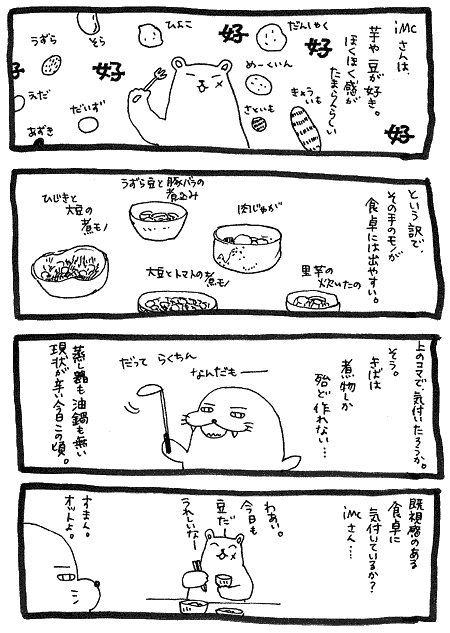 iMcさんは、
芋や豆が好き。
ほくほく感が
たまらんらしい
好
だんしゃく
好
めーくいん
きょういも
好
さといも
ひよこ
好
そら
うずら
好
えだ
だいず
あずき
という訳で、
その手のモノが
食卓には出やすい。
肉じゃが
里芋の
炊いたの
うずら豆と豚バラの
煮込み
大豆とトマトの煮モノ
ひじきと
大豆の
煮モノ
上のコマで、気付いたろうか。
そう。
きばは
煮物しか
殆ど作れない…
なんだもー
だって らくちん
蒸し器も油鍋も無い
現状が辛い今日この頃。
既視感のある
食卓に
気付いているか?
iMcさん…
わあい。
今日も
豆だー
うれしいなー
すまん。
オットよ。